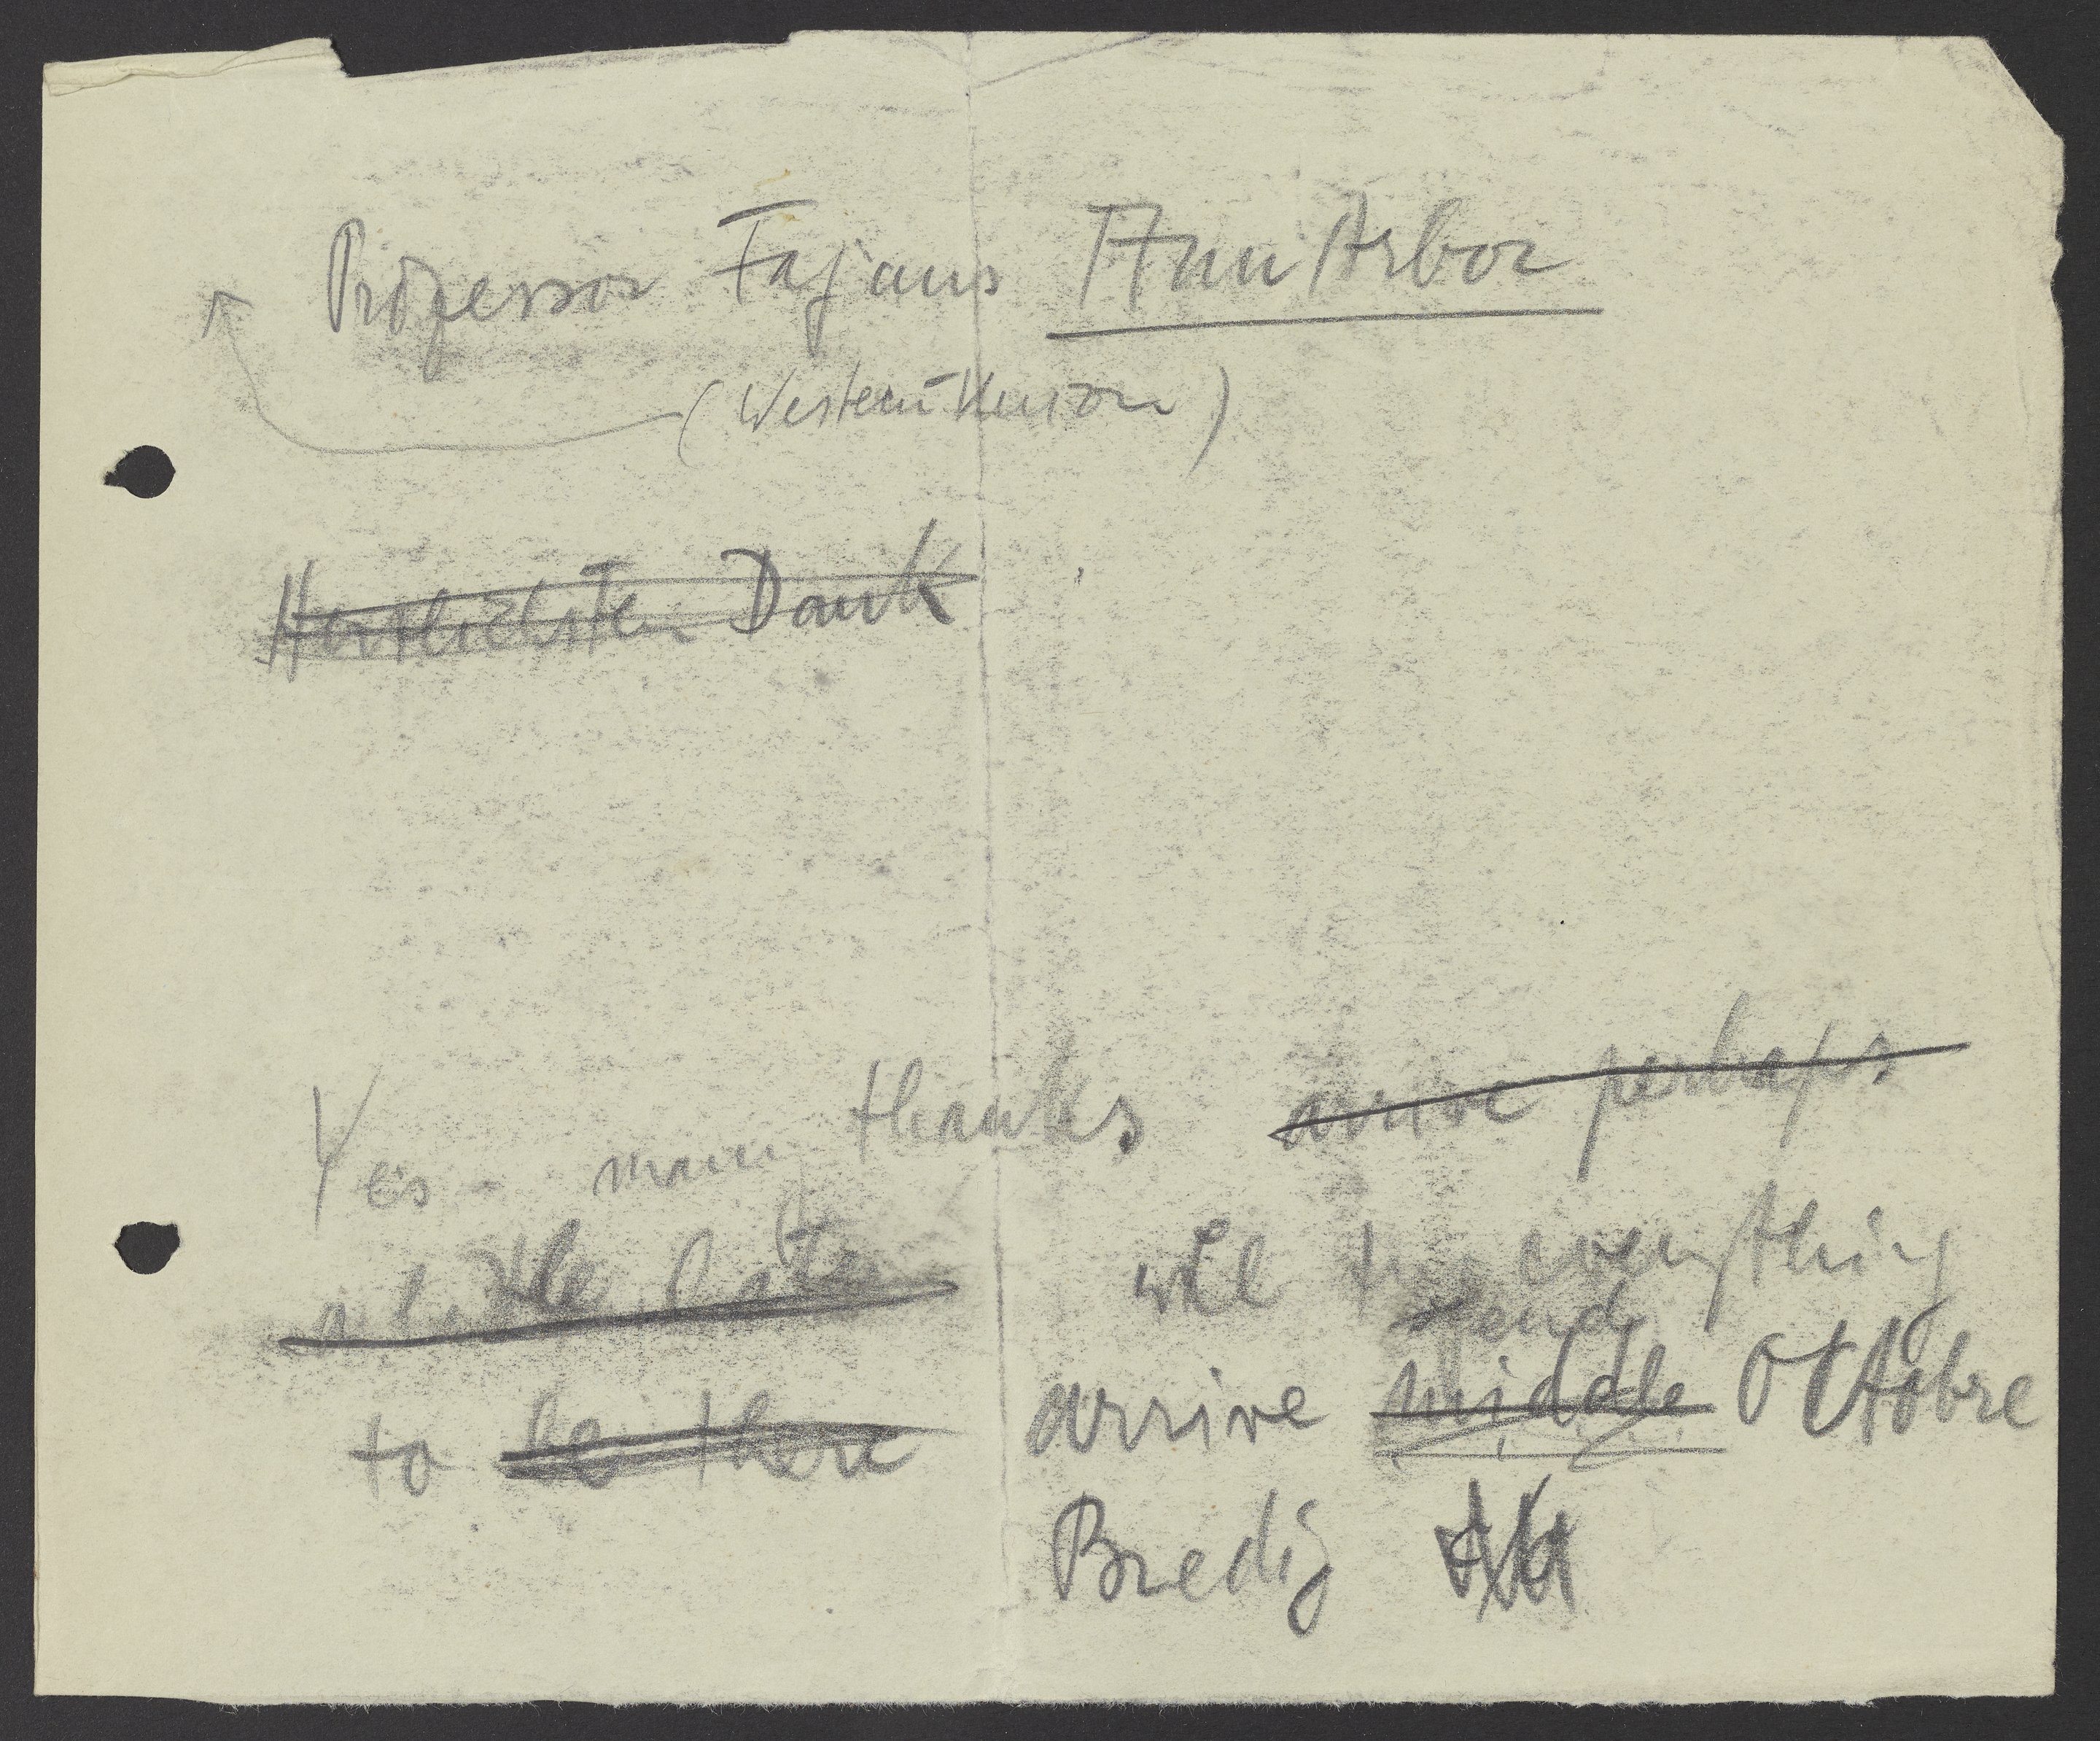 Professor Fajans Ann Arbor
(Western Union)
Herzlichsten Dank
Yes - many thanks arrive perhaps
a little later will try everything
end
to be there arrive middle Octobre
Bredig